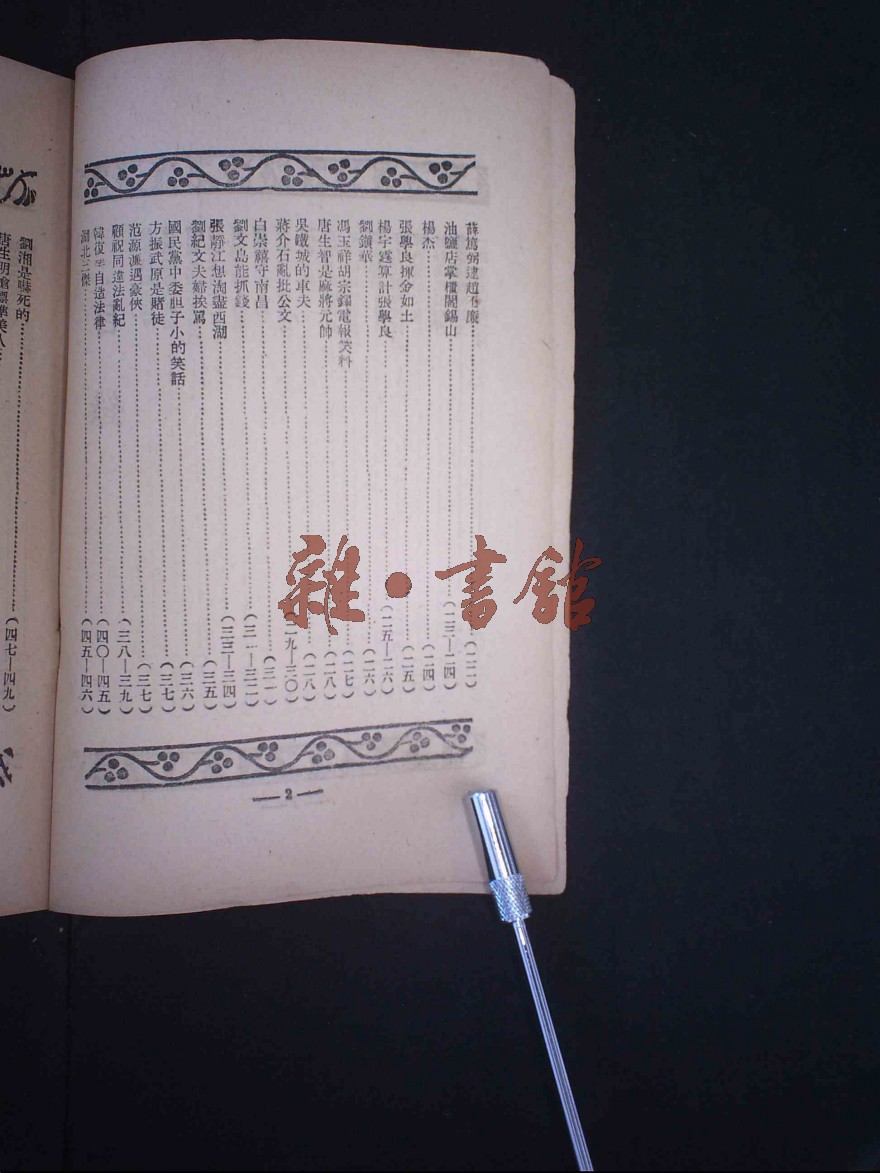 薛篤弼逮趙不廉……（二二）
油鹽店掌櫃閻錫山……（二三—二四）
楊杰……（二四）
張學良揮金如土……（二五）
楊宇霆算計張學良……（二五—二六）
劉鎮華……（二六）
馮玉祥胡宗鐸電報笑料……（二七）
唐生智是麻將元帥……（二八）
吳鐵城的車夫……（二八）
蔣介石亂批公文……（二九—三〇）
白崇禧守南昌……（三一）
劉文島能抓錢……（三一—三二）
張靜江想淘盡西湖……（三三—三四）
劉紀文夫婦挨罵……（三五）
國民黨中委胆子小的笑話……（三六）
方振武原是賭徒……（三七）
范源濂遇豪俠……（三七）
顧祝同違法亂紀……（三八—三九）
韓復榘自造法律……（四〇—四五）
湖北三傑……（四五—四六）
— 2 —
劉湘是嚇死的……（四七—四九）
唐生明
雜·書館